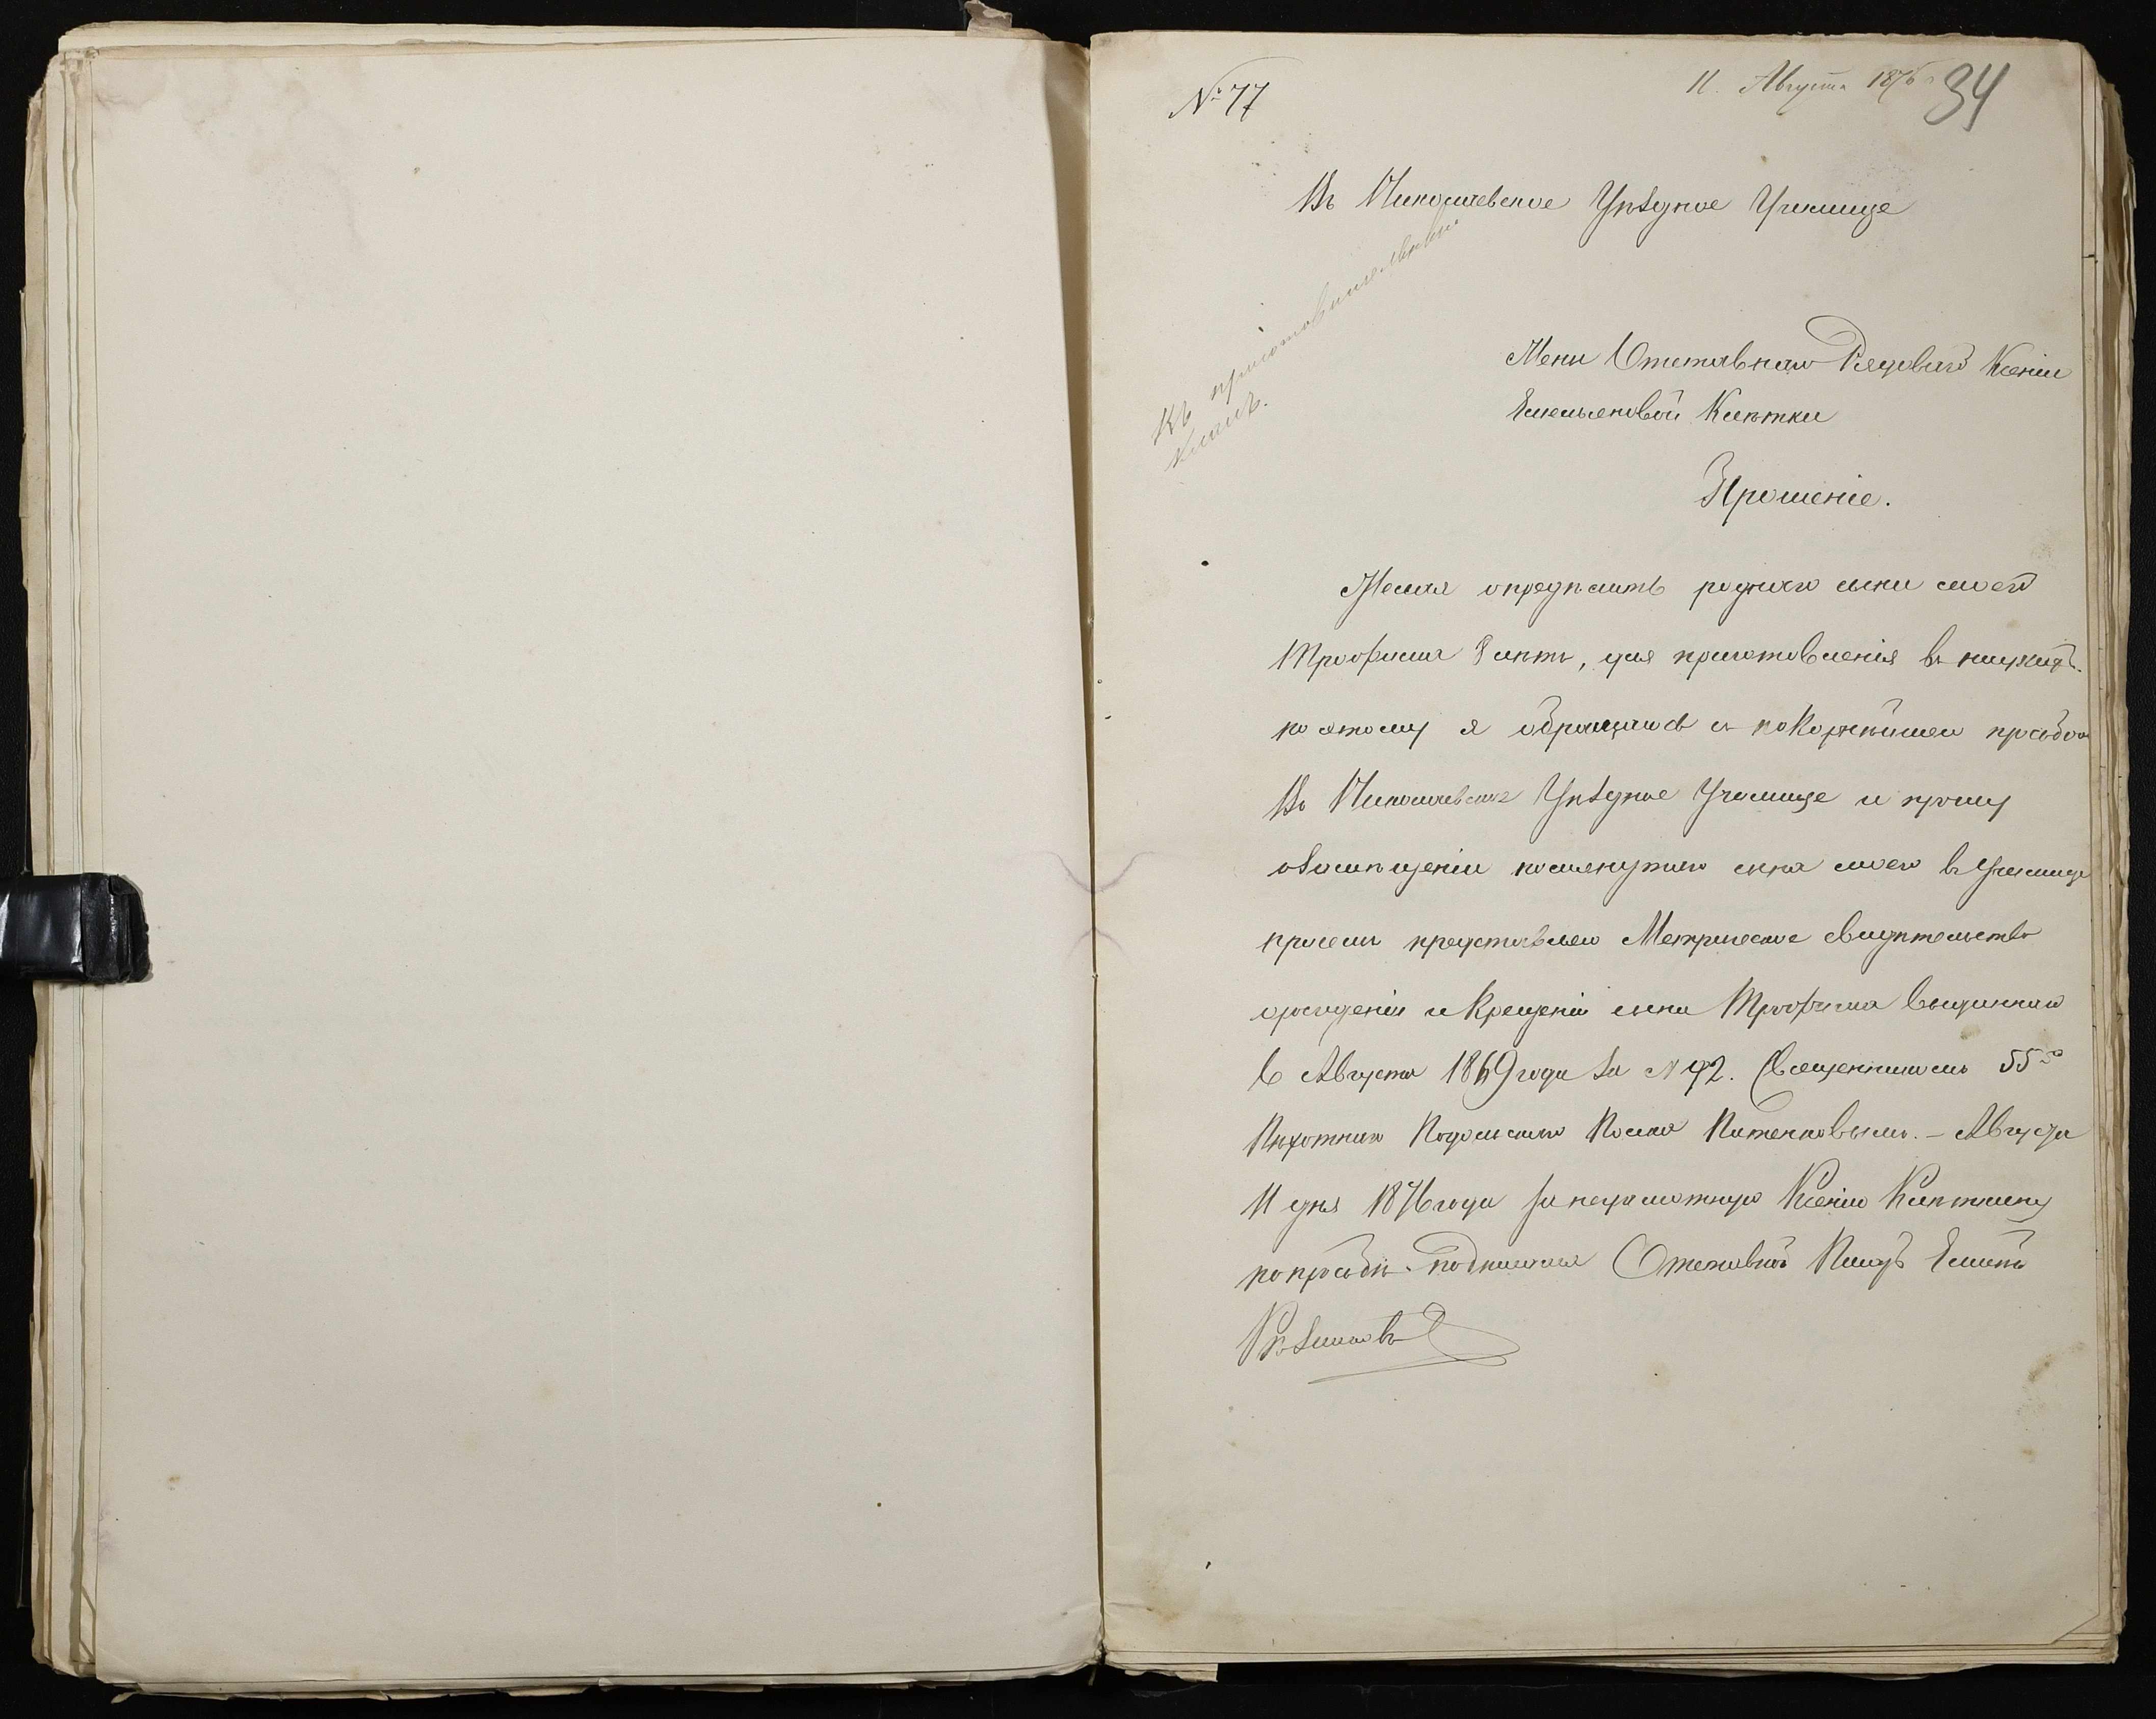 № 77
11. Августа 1876 г.
34
Въ Николаевское Уѣздное Училище
Къ приготовительный
классъ.
Жены Отставнаго Рядоваго Ксеніи
Емельяновой Клѣтки
Прошеніе.
Желая опредѣлить роднаго сына моего
Трофима 8 лѣтъ, для приготовленія в
по этому я обращаюсь съ покорнѣйшею прозьбою
Въ Николаевское Уѣздное Училище и прошу
о замѣщеніи помянутаго сына моего в Училище
присемъ представляю Метрическое свидѣтельство
орожденіи и Крещеніи сына Трофима выданнаго
6 Августа 1869 года за № 92. Священникомъ 55го
Пѣхотнаго Подольскаго Полка Патенковымъ. – Августа
11 дня 1876 года за неграмотную Ксенію Клѣткину
попрозьбѣ подписалъ Отставной Писарь